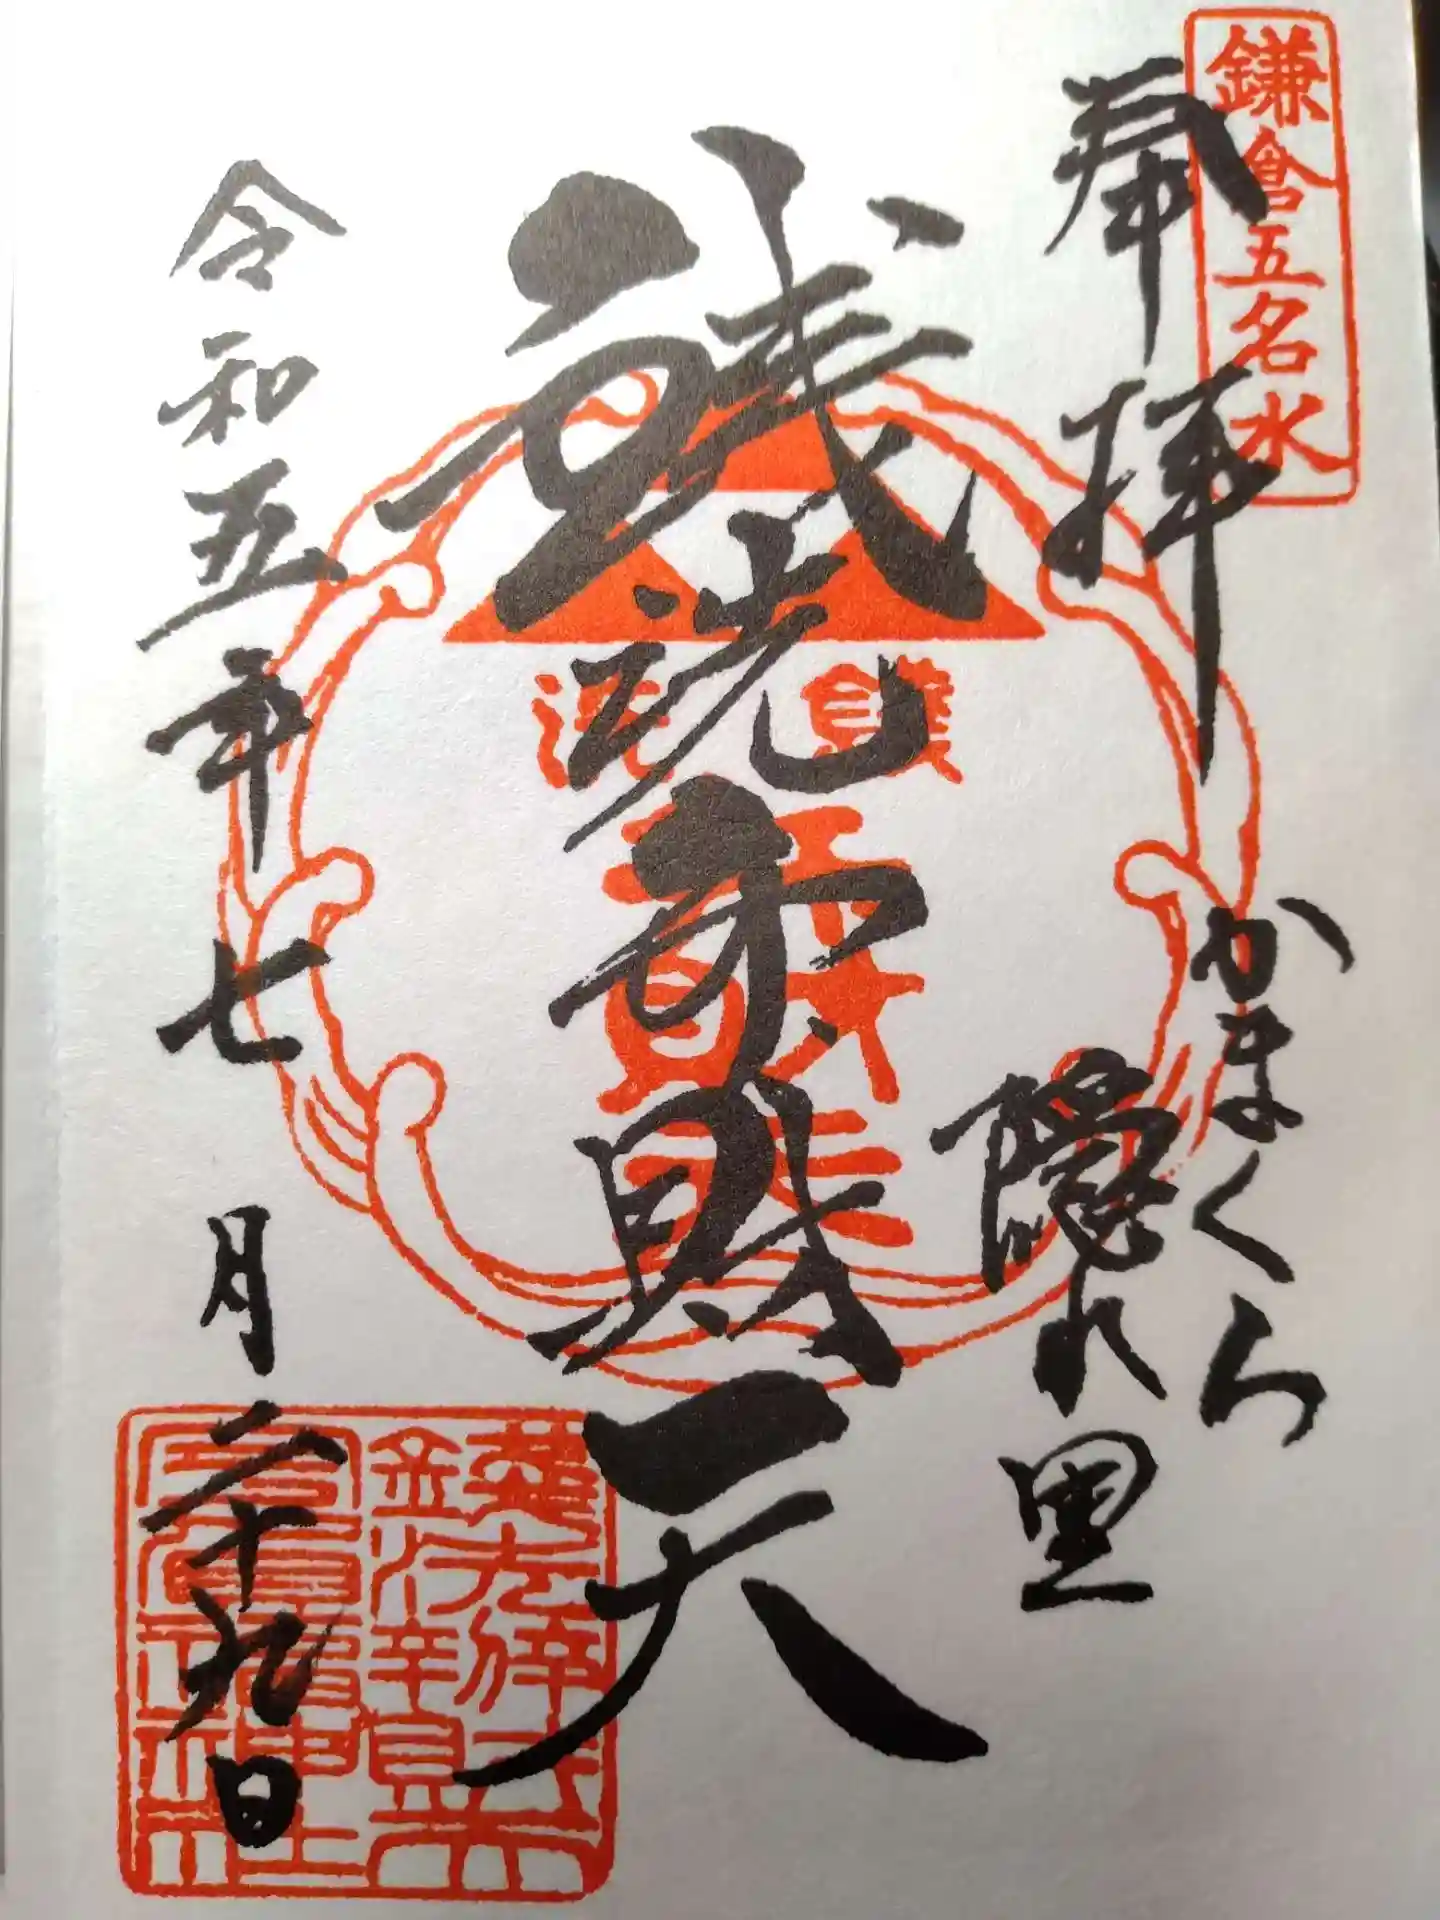 鎌倉五名水
奉拝
かまくら
隠れ里
銭洗弁財天
銭洗
弁財天
令和五年七月二十九日
銭洗弁財天
宇賀福神社